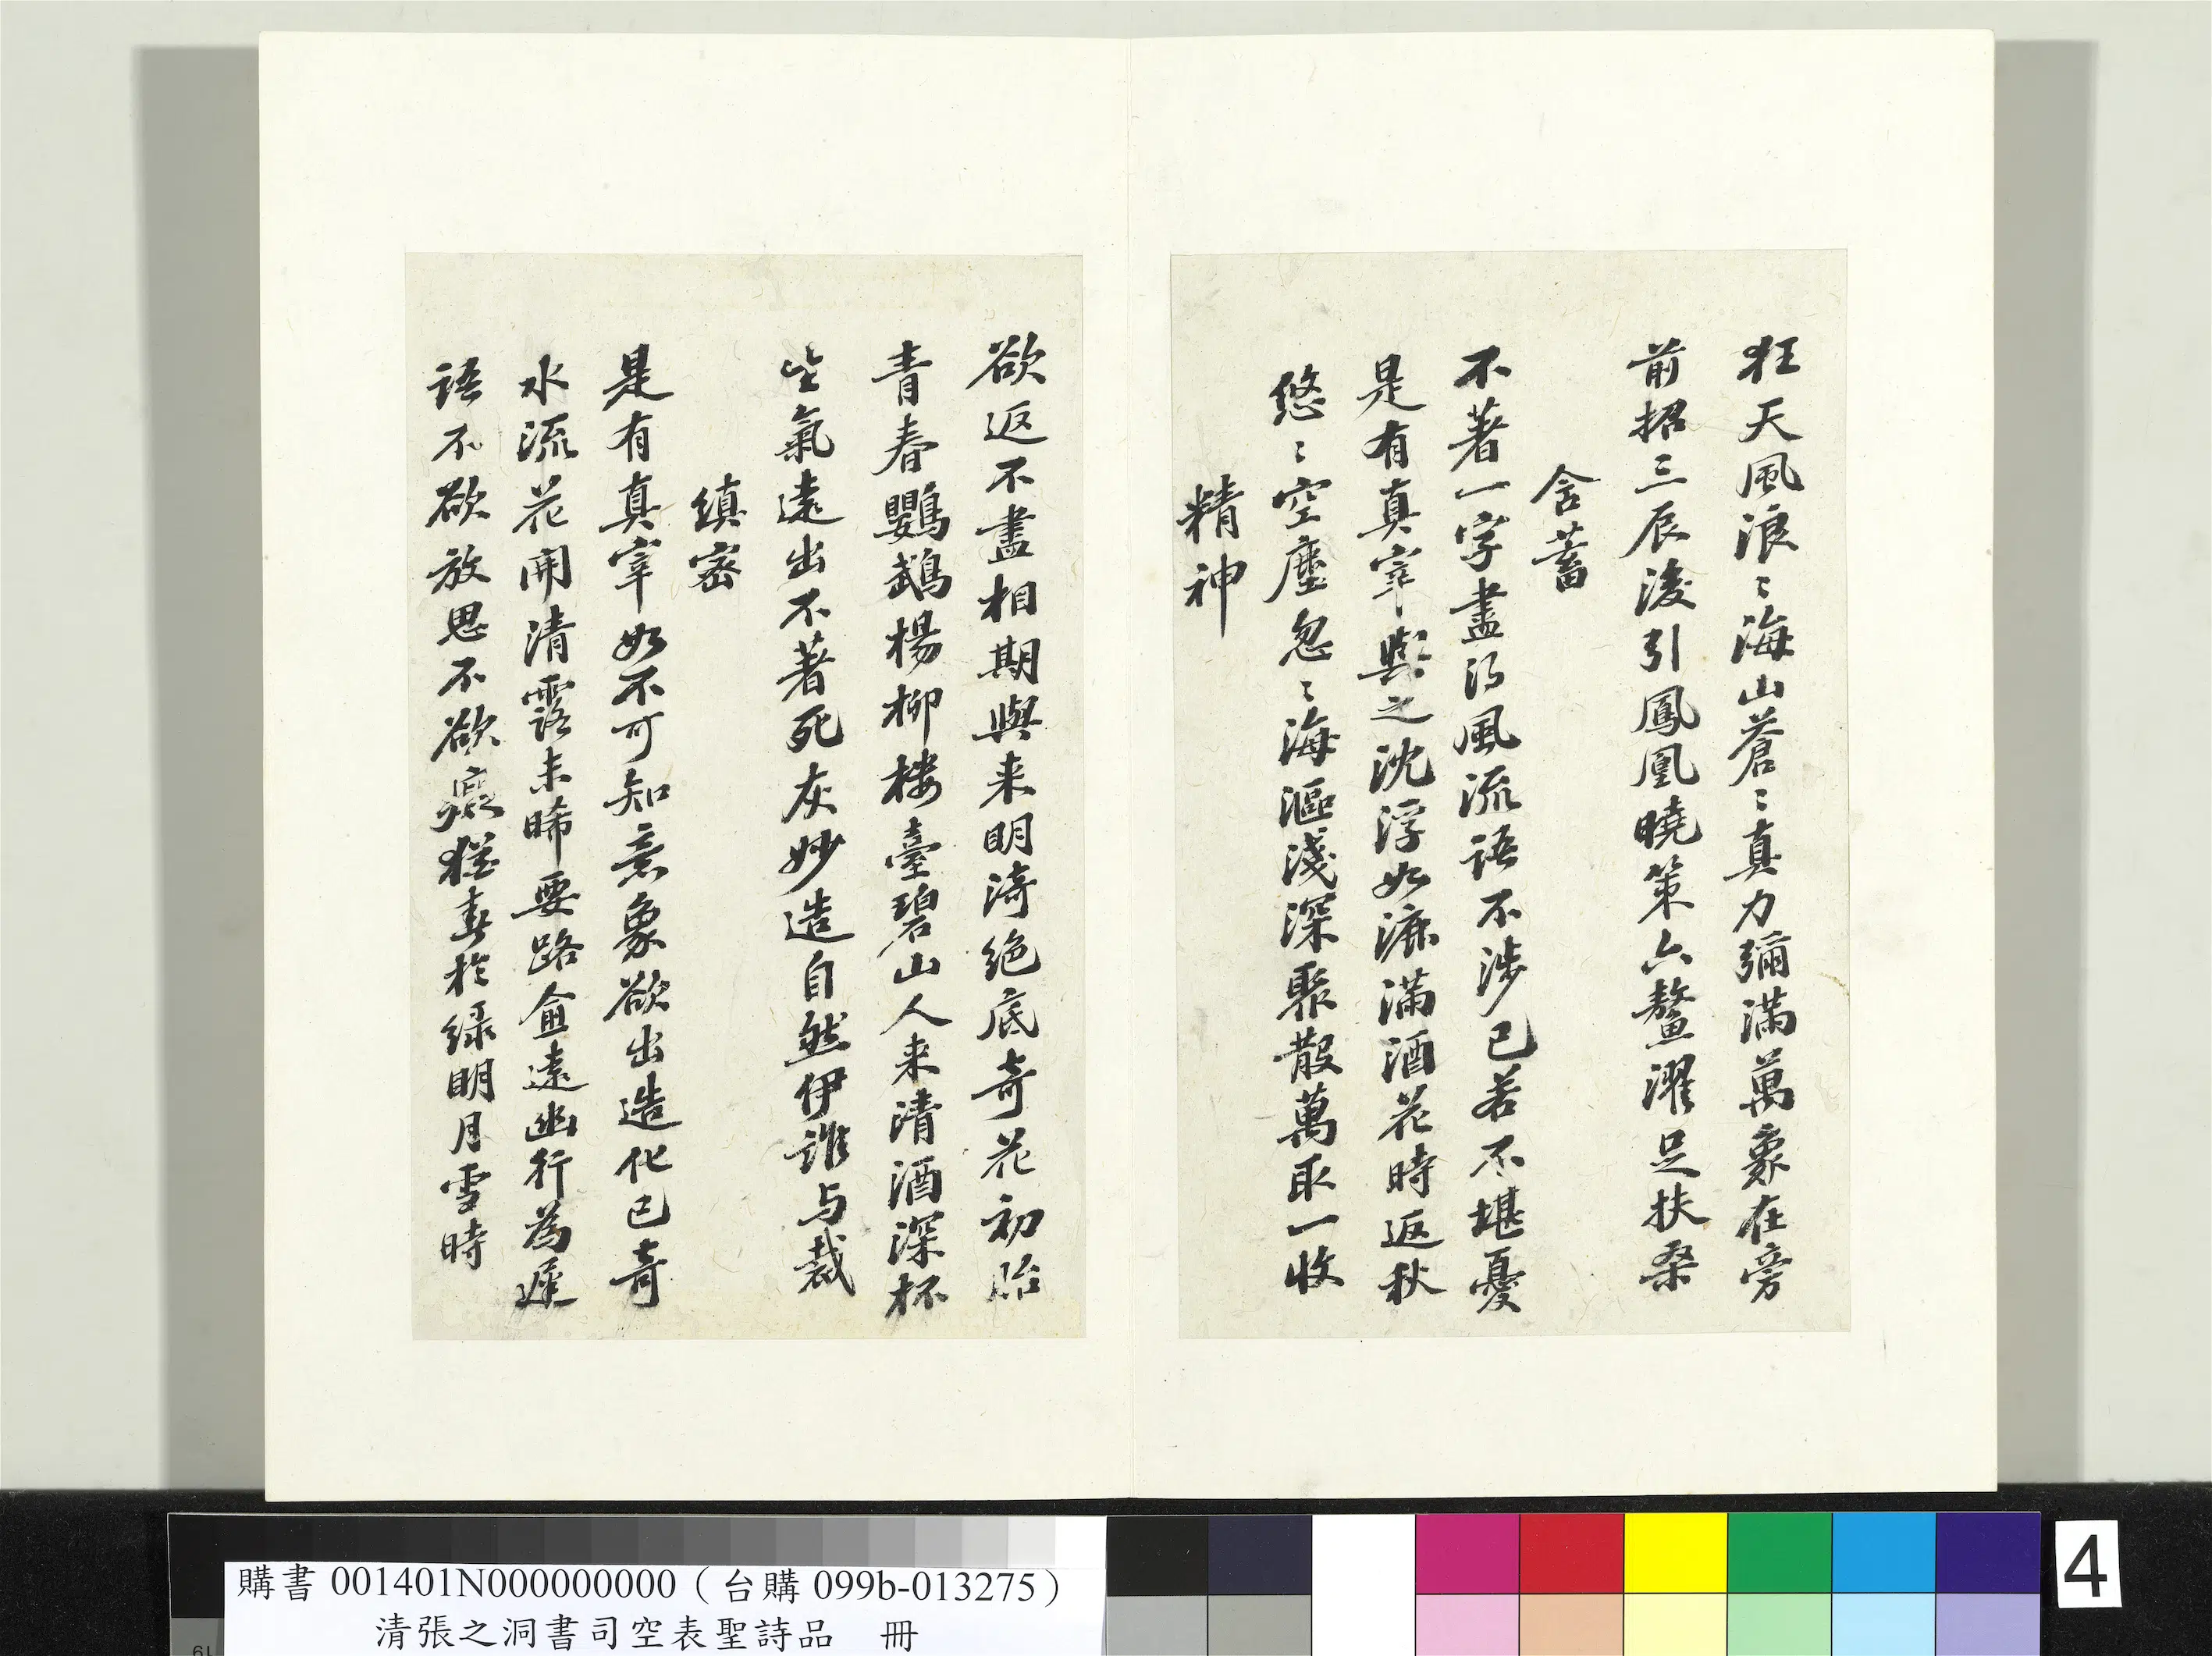 狂天風浪〻海山蒼〻真力彌滿萬象在旁
前招三辰後引鳳凰曉策六鼇濯足扶桑
含蓄
不著一字盡得風流語不涉己若不堪憂
是有真宰與之沈浮如漉滿酒花時返秋
悠〻空塵忽〻海漚淺深聚散萬取一收
精神
欲返不盡相期與来明漪絶底奇花初胎
青春鸚鵡楊柳樓臺碧山人来清酒深杯
生氣遠出不著死灰妙造自然伊誰与裁
縝密
是有真宰如不可知意象欲出造化已奇
水流花開清露未晞要路愈遠幽行為遲
語不欲放思不欲癡猶春於緑明月雪時
購書 001401N000000000（台購 099b-013275）
清張之洞書司空表聖詩品　冊
4
19